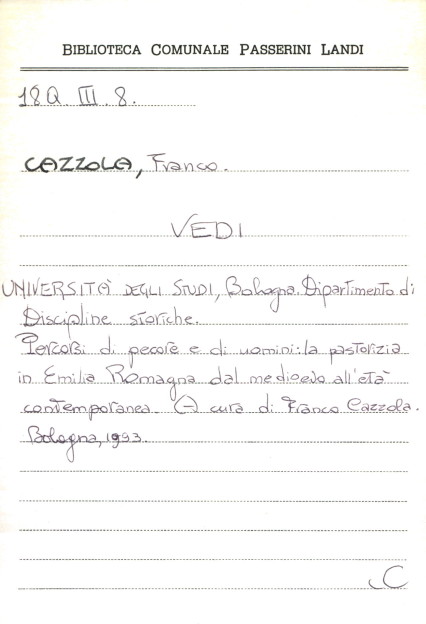 BIBLIOTECA COMUNALE PASSERINI LANDI
18Q. III. 8.
CAZZOLA, Franco.
VEDI
UNIVERSITA' DEGLI STUDI, Bologna. Dipartimento di
Discipline storiche.
Percorsi di pecore e di uomini: la pastorizia
in Emilia Romagna dal medioevo all'età
contemporanea. A cura di Franco Cazzola.
Bologna, 1993.
C